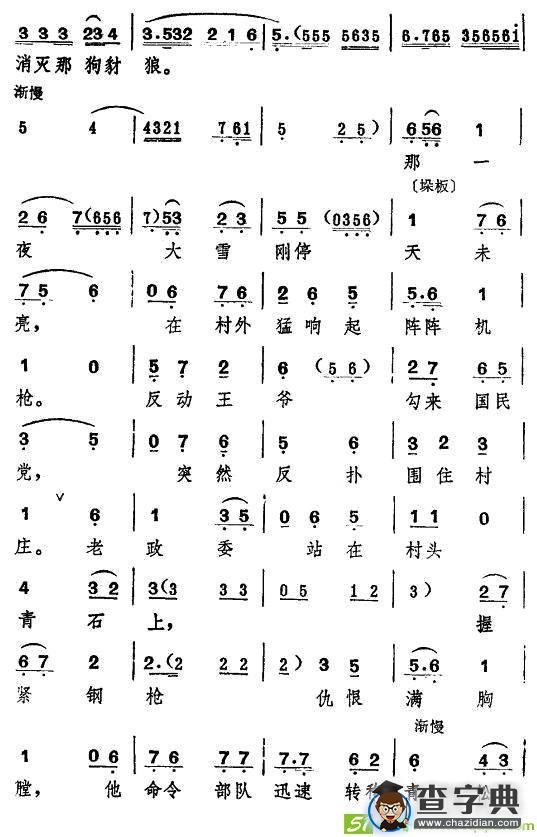 3 3 3 234 | 3.532 2 1 6 | 5.(555 5635 | 6.765 356561
消灭那狗豺 狼。
渐慢
5 4 | 4321 761 | 5 2 5) | 656 1
那一
〔垛板〕
2 6 7(656 | 7)53 2 3 | 5 5 (0356 | 1 7 6
夜 大雪刚停 天未
7 5 6 | 0 6 7 6 | 2 6 5 | 5.6 1
亮， 在村外猛响起阵阵机
1 0 | 5 7 2 | 6 (5 6) | 2 7 6 5
枪。 反动王爷 勾来国民
3 5 | 0 7 6 | 5 6 | 3 2 3
党， 突然反扑围住村
1 ∨ 6 | 1 3 5 | 0 6 5 | 1 1 0
庄。老政委 站在村头
4 3 2 | 3(3 3 3 | 0 5 1 2 | 3) 2 7
青石上， 握
6 7 2 | 2.(2 2 2 | 2) 3 5 | 5.6 1
紧钢枪 仇恨满胸
渐慢
1 0 6 | 7 6 7 6 | 7.7 6 2 | 6 4 3
膛， 他命令部队迅速转移青松
查字典
www.chazidian.com